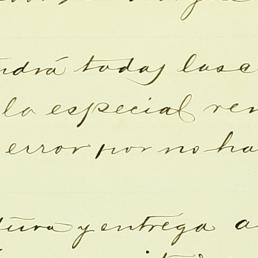 ndrá todas las c
lo especial ren
error por no ha
tura y entrega a